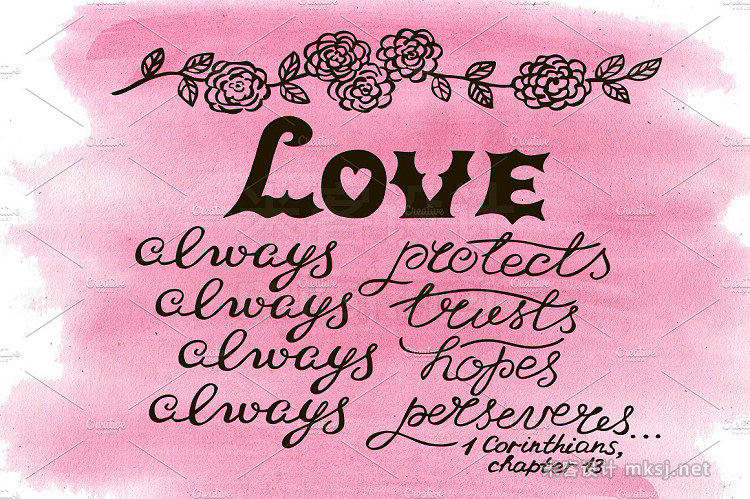 LOVE
always protects
always trusts
always hopes
always perseveres...
1 Corinthians,
chapter 13
mksj.net